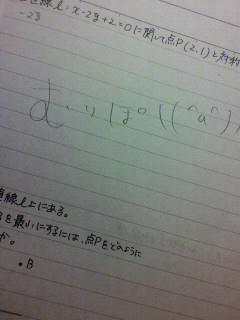 直線ℓ:x-2y+2=0に関して点P(2,1)と対称
-2y
む・りぽ((^a^)
直線ℓ上にある。
を最小にするには、点Pをどのように
か。
・B